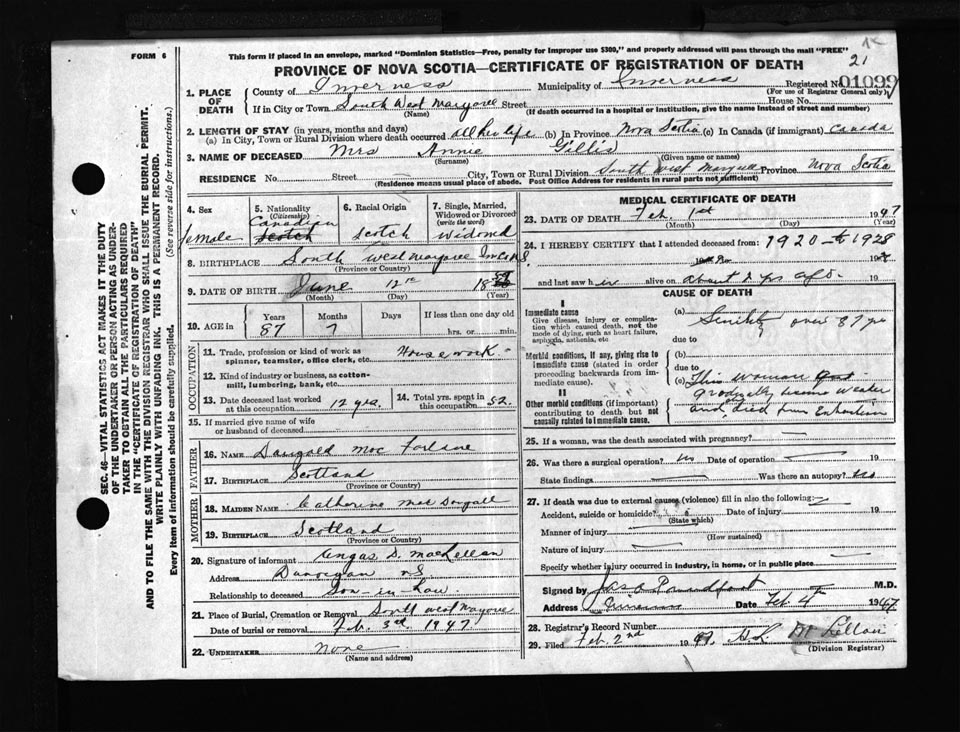 1K
21
FORM 6
This form if placed in an envelope, marked "Dominion Statistics—Free, penalty for improper use $300," and properly addressed will pass through the mail "FREE"
PROVINCE OF NOVA SCOTIA—CERTIFICATE OF REGISTRATION OF DEATH
1. PLACE OF DEATH
County of Inverness Municipality of Inverness Registered No. 01099
(For use of Registrar General only)
If in City or Town South West Margaree Street House No.
(Name) (If death occurred in a hospital or institution, give the name instead of street and number)
2. LENGTH OF STAY (in years, months and days)
(a) In City, Town or Rural Division where death occurred all her life (b) In Province Nova Scotia (c) In Canada (if immigrant) Canada
3. NAME OF DECEASED Mrs Annie Gillis
(Surname) (Given name or names)
RESIDENCE No. Street City, Town or Rural Division South West Margaree Province Nova Scotia
(Residence means usual place of abode. Post Office Address for residents in rural parts not sufficient)
4. Sex female
5. Nationality (Citizenship) Canadian Scotch
6. Racial Origin Scotch
7. Single, Married, Widowed or Divorced (write the word) Widowed
8. BIRTHPLACE South West Margaree Inv Co N.S.
(Province or Country)
9. DATE OF BIRTH June 12 1859
(Month) (Day) (Year)
10. AGE in Years Months Days If less than one day old
87 7 hrs. or min.
OCCUPATION
11. Trade, profession or kind of work as spinner, teamster, office clerk, etc. Housework
12. Kind of industry or business, as cotton-mill, lumbering, bank, etc.
13. Date deceased last worked at this occupation 12 yrs.
14. Total yrs. spent in this occupation 52.
15. If married give name of wife or husband of deceased
FATHER
16. NAME Dougald Mac Farlane
17. BIRTHPLACE Scotland
(Province or Country)
MOTHER
18. MAIDEN NAME Catherine Mac Dougall
19. BIRTHPLACE Scotland
(Province or Country)
20. Signature of informant Angas D. MacLellan
Address Dunvegan N S
Relationship to deceased Son-in-Law
21. Place of Burial, Cremation or Removal South West Margaree
Date of burial or removal Feb. 3rd 1947
22. UNDERTAKER None
(Name and address)
MEDICAL CERTIFICATE OF DEATH
23. DATE OF DEATH Feb. 1st 1947
(Month) (Day) (Year)
24. I HEREBY CERTIFY that I attended deceased from: 1920 to 1928
and last saw her alive on about 2 yrs ago. 19
CAUSE OF DEATH
I
Immediate cause
Give disease, injury or complication which caused death, not the mode of dying, such as heart failure, asphyxia, asthenia, etc
(a) Senility over 87 yrs
due to
Morbid conditions, if any, giving rise to immediate cause (stated in order proceeding backwards from immediate cause).
(b)
due to
(c) This woman gradually became weaker and died from Exhaustion
II
Other morbid conditions (if important) contributing to death but not causally related to immediate cause.
25. If a woman, was the death associated with pregnancy?
26. Was there a surgical operation? No Date of operation
State findings Was there an autopsy? No
27. If death was due to external causes (violence) fill in also the following:
Accident, suicide or homicide? Date of injury 19
(State which)
Manner of injury
(How sustained)
Nature of injury
Specify whether injury occurred in industry, in home, or in public place
Signed by Jas. O Proudfoot M.D.
Address Inverness Date Feb 4th 1947
28. Registrar's Record Number
29. Filed Feb. 2nd 1947 (Division Registrar)
SEC. 46—VITAL STATISTICS ACT MAKES IT THE DUTY
OF THE UNDERTAKER OR PERSON ACTING AS UNDERTAKER TO OBTAIN ALL THE PARTICULARS REQUIRED
IN THE "CERTIFICATE OF REGISTRATION OF DEATH"
AND TO FILE THE SAME WITH THE DIVISION REGISTRAR WHO SHALL ISSUE THE BURIAL PERMIT.
WRITE PLAINLY WITH UNFADING INK. THIS IS A PERMANENT RECORD.
Every item of information should be carefully supplied. (See reverse side for instructions.)